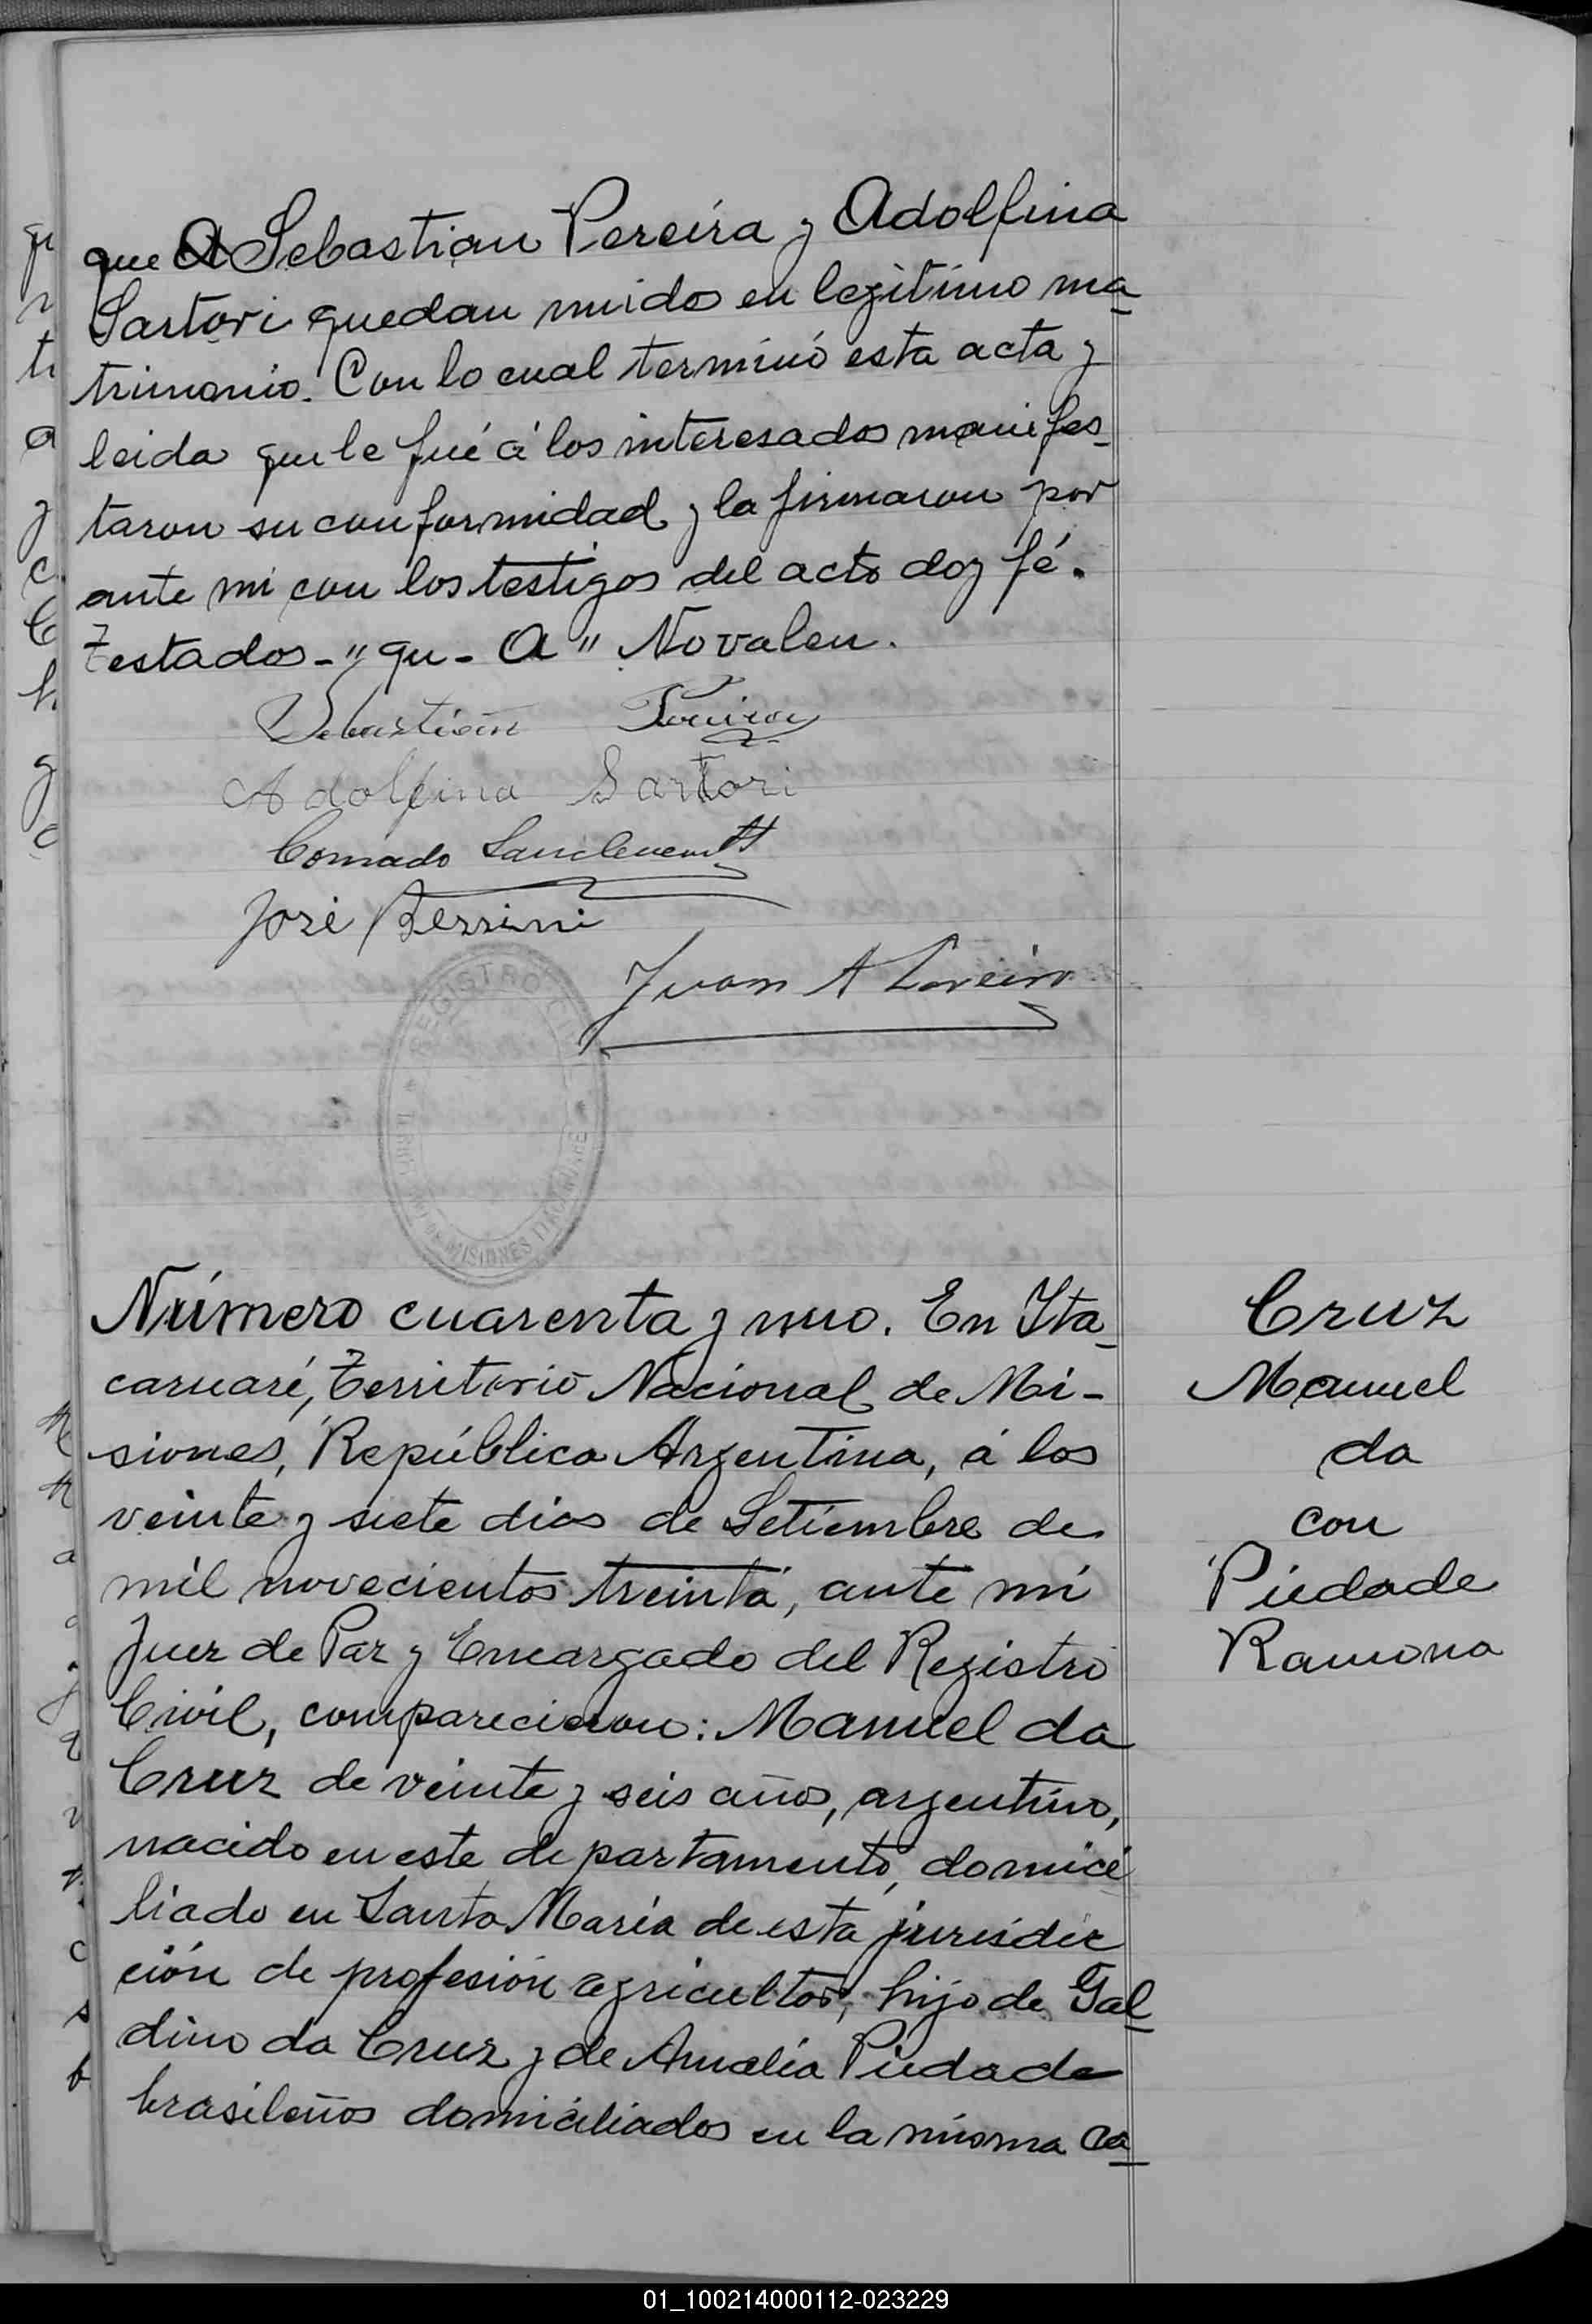 que A Sebastian Pereira y Adolfina
Sartori quedan unidos en legítimo ma-
trimonio. Con lo cual terminó esta acta y
leida que le fué á los interesados manifes-
taron su conformidad y la firmaron por
ante mi con los testigos del acto doy fé.
Testados-"qu-A" No valen.
Sebastián Pereira
Adolfina Sartori
Conrado
José Berrini
Juan A Loreiro
REGISTRO CIVIL
DE MISIONES ITACARUARE
Número cuarenta y uno. En Ita-
caruaré, Territorio Nacional de Mi-
siones, República Argentina, á los
veinte y siete dias de Setiembre de
mil novecientos treinta, ante mi
Juez de Paz y Encargado del Registro
Civil, comparecieron: Manuel da
Cruz de veinte y seis años, argentino,
nacido en este departamento, domici
liado en Santa María de esta jurisdic
ción de profesión agricultor, hijo de Gal-
dino da Cruz y de Amalia Piedade
brasileños domiciliados en la misma ca-
Cruz
Manuel
da
con
Piedade
Ramona
01_100214000112-023229